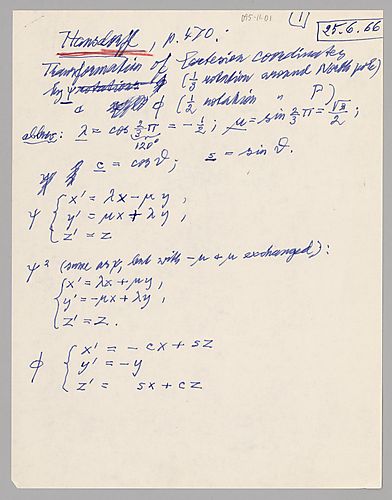 095-11-01
(1)
25.6.66
Hausdorff, p. 470.:
Transformation of Cartesian coordinates
by ψ rotations (1/3 rotation around North pole)
a ϕ (1/2 rotation " P)
abbrev: λ = cos 2/3 π = -1/2; μ = sin 2/3 π = √3/2;
120°
c = cos ϑ; s = sin ϑ.
ψ { x' = λx - μy,
y' = μx + λy,
z' = z
ψ² (same as ψ, but with -μ & μ exchanged,):
{ x' = λx + μy,
y' = -μx + λy,
z' = z.
ϕ { x' = -cx + sz
y' = -y
z' = sx + cz